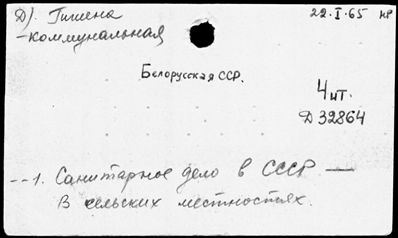 Д). Гигиена 22.I.65 НР
-коммунальная
Белорусская ССР.
4 шт.
Д 32864
--1. Санитарное дело в СССР —
В сельских местностьях.